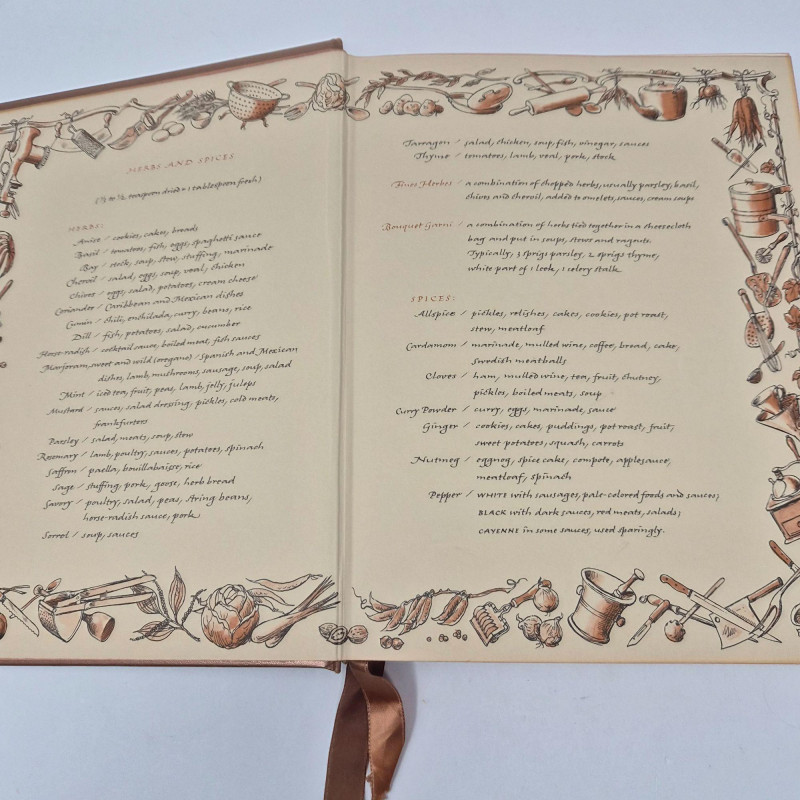 HERBS AND SPICES
(⅓ to ½ teaspoon dried = 1 tablespoon fresh)
HERBS:
Anise / cookies, cakes, breads
Basil / tomatoes, fish, eggs, spaghetti sauce
Bay / stock, soup, stew, stuffing, marinade
Chervil / salad, eggs, soup, veal, chicken
Chives / eggs, salad, potatoes, cream cheese
Coriander / Caribbean and Mexican dishes
Cumin / chili, enchilada, curry, beans, rice
Dill / fish, potatoes, salad, cucumber
Horse-radish / cocktail sauce, boiled meat, fish sauces
Marjoram, sweet and wild (oregano) / Spanish and Mexican
dishes, lamb, mushrooms, sausage, soup, salad
Mint / iced tea, fruit, peas, lamb, jelly, juleps
Mustard / sauces, salad dressing, pickles, cold meats,
frankfurters
Parsley / salad, meats, soup, stew
Rosemary / lamb, poultry, sauces, potatoes, spinach
Saffron / paella, bouillabaisse, rice
Sage / stuffing, pork, goose, herb bread
Savory / poultry, salad, peas, string beans,
horse-radish sauce, pork
Sorrel / soup, sauces
Tarragon / salad, chicken, soup, fish, vinegar, sauces
Thyme / tomatoes, lamb, veal, pork, stock
Fines Herbes / a combination of chopped herbs, usually parsley, basil,
chives and chervil, added to omelets, sauces, cream soups
Bouquet Garni / a combination of herbs tied together in a cheesecloth
bag and put in soups, stews and ragouts.
Typically, 3 sprigs parsley, 2 sprigs thyme,
white part of 1 leek, 1 celery stalk.
SPICES:
Allspice / pickles, relishes, cakes, cookies, pot roast,
stew, meatloaf
Cardamom / marinade, mulled wine, coffee, bread, cake,
Swedish meatballs
Cloves / ham, mulled wine, tea, fruit, chutney,
pickles, boiled meats, soup
Curry Powder / curry, eggs, marinade, sauce
Ginger / cookies, cakes, puddings, pot roast, fruit,
sweet potatoes, squash, carrots
Nutmeg / eggnog, spice cake, compote, applesauce,
meatloaf, spinach
Pepper / WHITE with sausages, pale-colored foods and sauces;
BLACK with dark sauces, red meats, salads;
CAYENNE in some sauces, used sparingly.